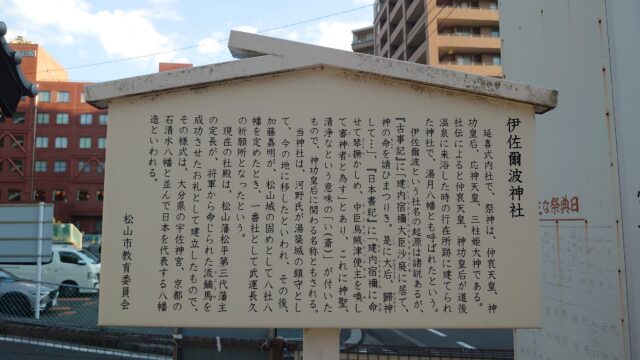 伊佐爾波神社
延喜式内社で、祭神は、仲哀天皇、神
功皇后、応神天皇、三柱姫大神である。
社伝によると仲哀天皇、神功皇后が道後
温泉に来浴した時の行在所跡に建てられ
た神社で、湯月八幡とも呼ばれたという。
伊佐爾波という社名の起源は諸説あるが、
『古事記』に「建内宿禰大臣沙庭に居て、
神の命を請ひまつりき。是に大后、歸神
して…」、『日本書記』に「建内宿禰に命
せて琴撫かしめ、中臣烏賊津使主を喚し
て審神者と為す」とあり、これに神聖、
清浄なという意味の「い（斎）」が付いた
もので、神功皇后に関わる名称ともされる。
当神社は、河野氏が湯築城の鎮守とし
て、今の地に移したといわれ、その後、
加藤嘉明が、松山城の固めとして八社八
幡を定めたとき、一番社として武運長久
の祈願所となったという。
現在の社殿は、松山藩松平第三代藩主
の定長が、将軍から命じられた流鏑馬を
成功させたお礼として建立したもので、
その様式は、大分県の宇佐神宮、京都の
石清水八幡と並んで日本を代表する八幡
造といわれる。
松山市教育委員会
な祭典日